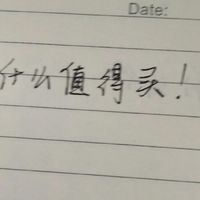 Date:
什么值得买！